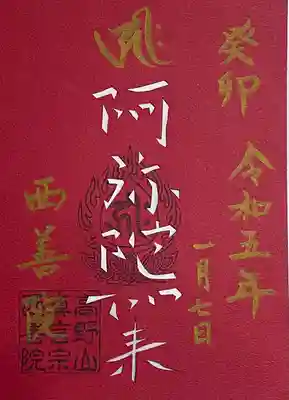 癸卯 令和五年
一月七日
阿弥陀如来
西善院
高野山
真言宗
西善院